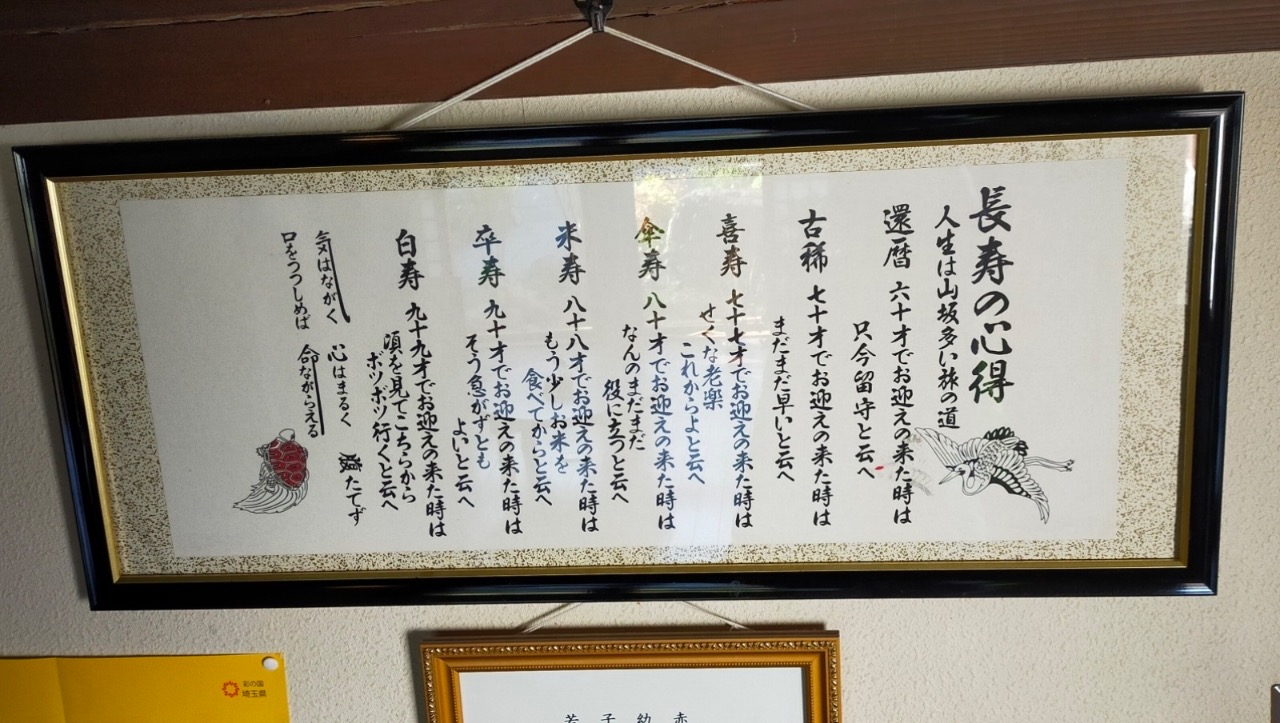 長寿の心得
人生は山坂多い旅の道
還暦 六十才でお迎えの来た時は
只今留守と云へ
古稀 七十才でお迎えの来た時は
まだまだ早いと云へ
喜寿 七十七才でお迎えの来た時は
せくな老楽
これからよと云へ
傘寿 八十才でお迎えの来た時は
なんのまだまだ
役に立つと云へ
米寿 八十八才でお迎えの来た時は
もう少しお米を
食べてからと云へ
卒寿 九十才でお迎えの来た時は
そう急がずとも
よいと云へ
白寿 九十九才でお迎えの来た時は
頃を見てこちらから
ボツボツ行くと云へ
気はながく 心はまるく 腹たてず
口をつつしめば 命ながらえる
彩の国
埼玉県
若子幼赤